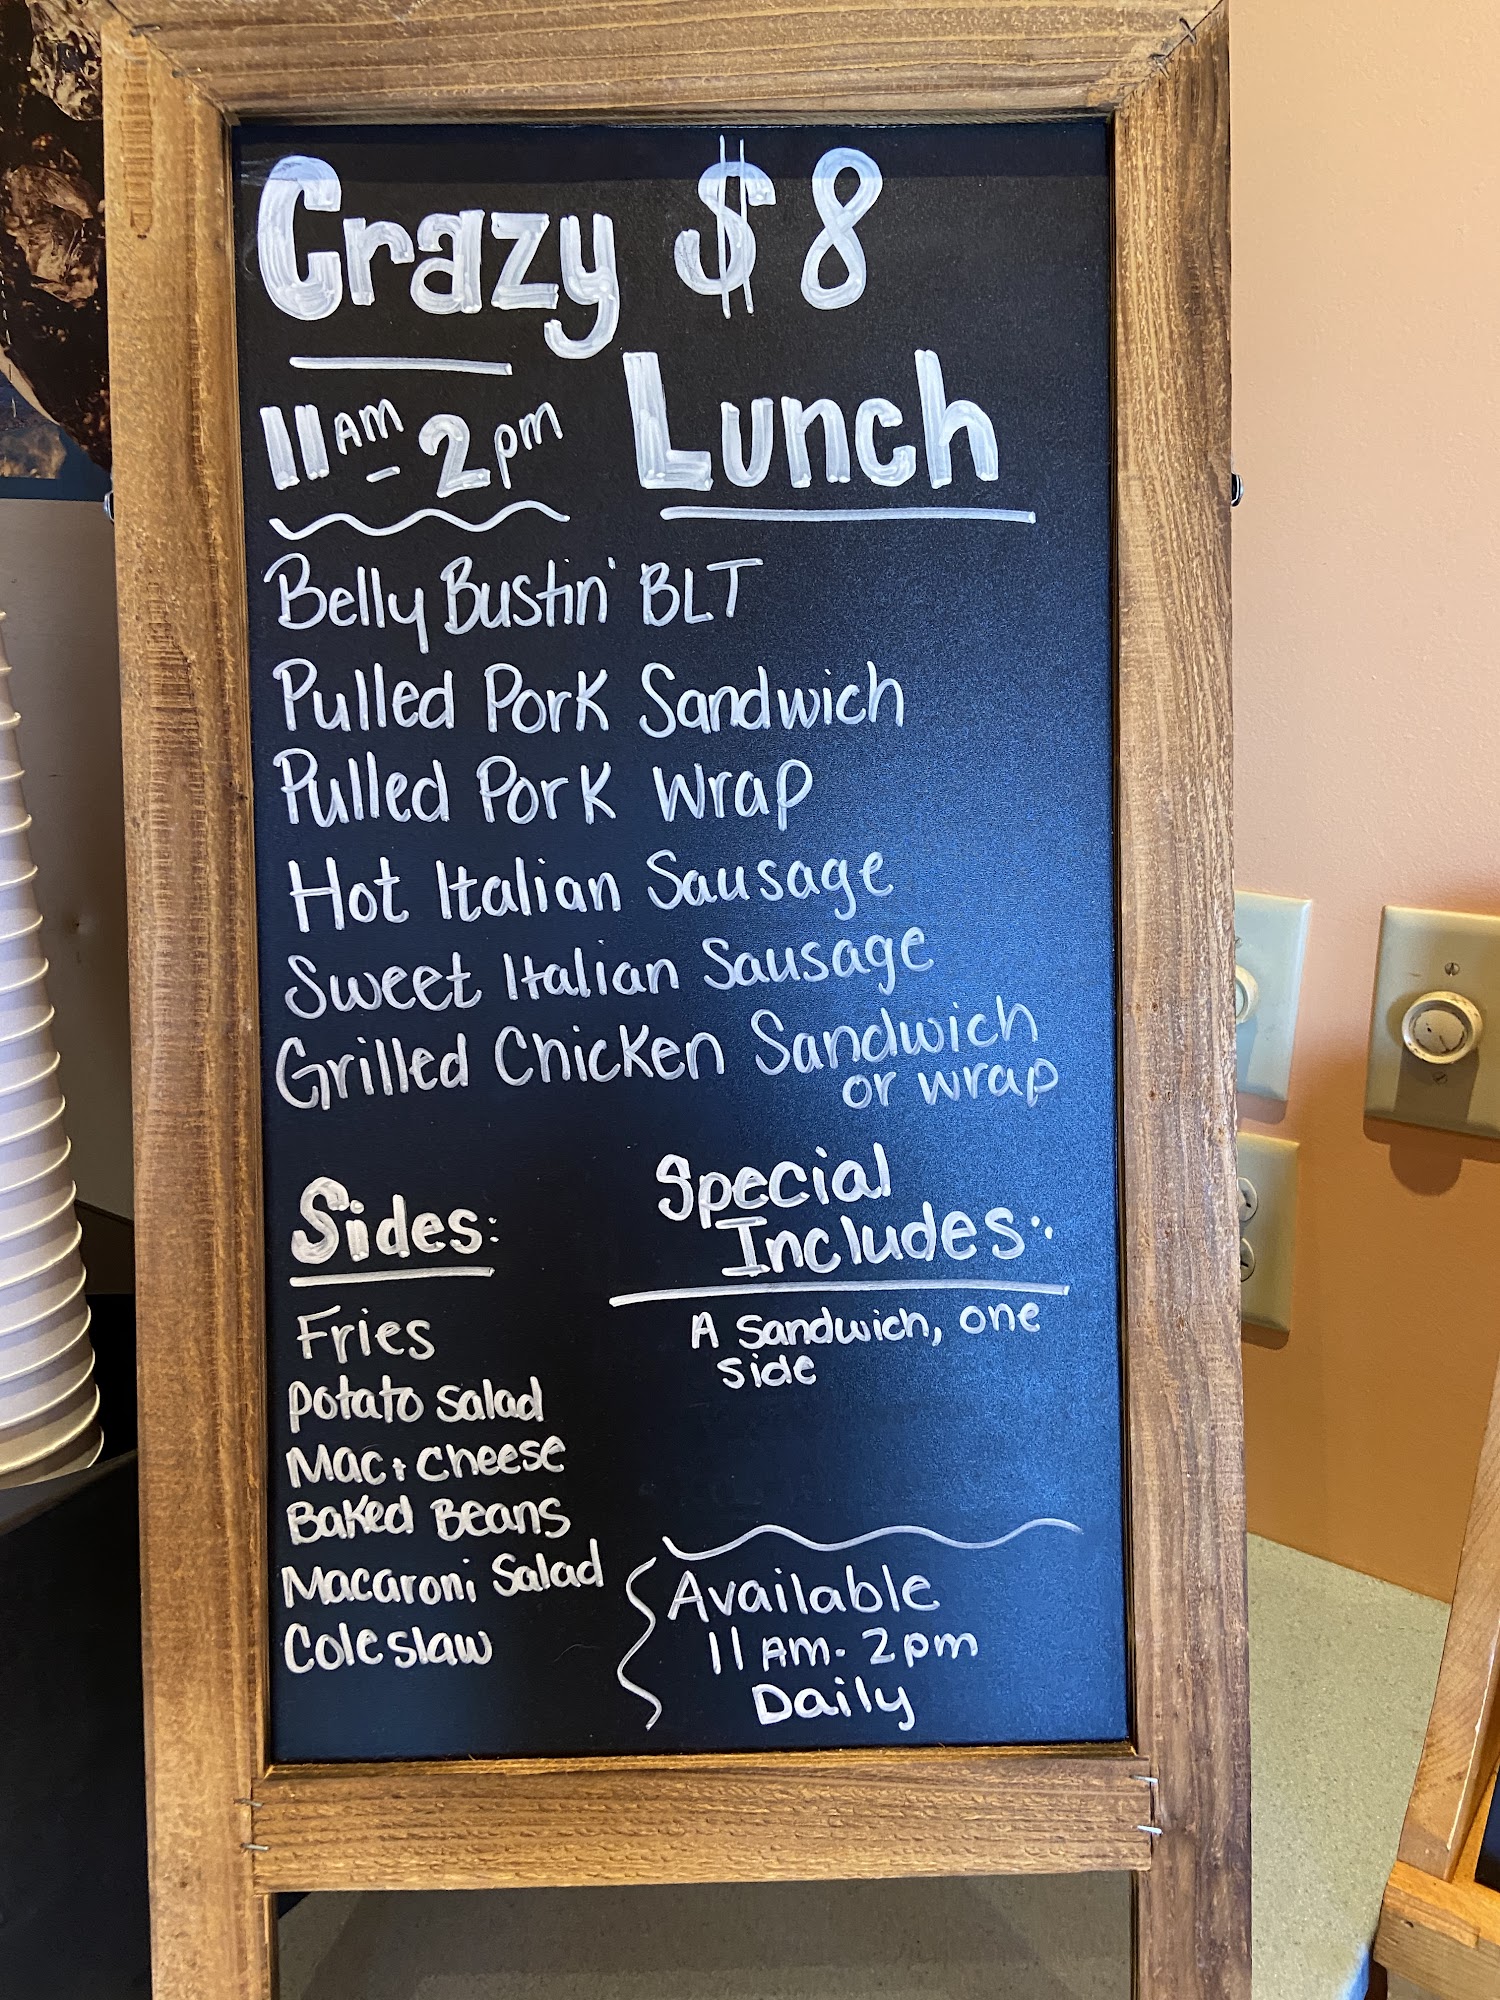 Crazy $8
11AM - 2pm Lunch
Belly Bustin' BLT
Pulled Pork Sandwich
Pulled Pork Wrap
Hot Italian Sausage
Sweet Italian Sausage
Grilled Chicken Sandwich
or wrap
Sides:
Fries
Potato Salad
Mac + Cheese
Baked Beans
Macaroni Salad
Coleslaw
Special
Includes:
A Sandwich, one
side
Available
11 AM - 2pm
Daily